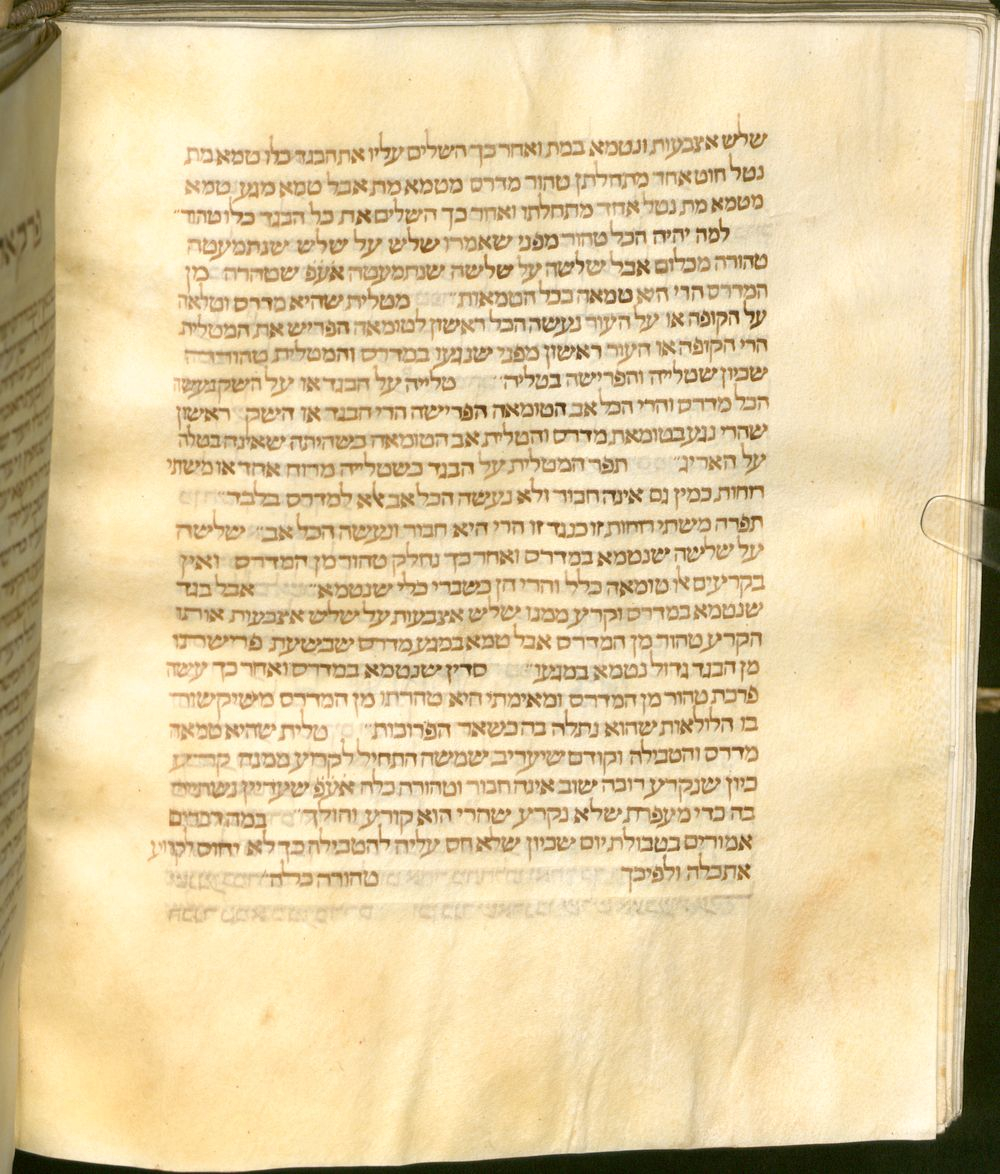 שלש אצבעות ונטמא במת ואחר כך השלים עליו את הבגד כלו טמא מת
נטל חוט אחד מתחלתן טהור מדרס מטמא מת אבל טמא מגע טמא
מטמא מת נטל אחד מתחלתו ואחר כך השלים את כל הבגד כלו טהור
למה יהיה הכל טהור מפני שאמרו שלש על שלש שנתמעטה
טהורה מכלום אבל שלשה על שלשה שנתמעטה אעפ שטהרה מן
המדרס הרי היא טמאה בכל הטמאות מטלית שהיא מדרס וטלאה
על הקופה או על העור נעשה הכל ראשון לטומאה הפריש את המטלית
הרי הקופה או העור ראשון מפני שנגעו במדרס והמטלית טהורה
שכיון שטלייה והפרישה בטליה טלייה על הבגד או על השק נעשה
הכל מדרס והרי הכל אב הטומאה הפרישה הרי הבגד או השק ראשון
שהרי נגע בטומאת מדרס והטלית אב הטומאה כשהיתה שאינה בטלה
על האריג תפר המטלית על הבגד כשטלייה מרוח אחד או משתי
רחות כמין גם אינה חבור ולא נעשה הכל אב לא למדרס בלבד
תפרה משתי רחות זו כנגד זו הרי היא חבור ונעשה הכל אב שלישה
על שלישה שנטמא במדרס ואחר כך נחלק טהור מן המדרס ואין
בקריעים לו טומאה כלל והרי הן כשברי כלי שנטמא אבל בגד
שנטמא במדרס וקרע ממנו שליש אצבעות על שלש אצבעות אותו
הקרע טהור מן המדרס אבל טמא במגע מדרס שבשעת פרישתו
מן הבגד גדול נטמא במגעו סדין שנטמא במדרס ואחר כך עשה
פרכת טהור מן המדרס ומאימתי היא טהרתו מן המדרס משיקשור
בו הלולאות שהוא נתלה בה כשאר הפרוכות טלית שהיא טמאה
מדרס והטבילה וקודם שיעריב שמשה התחיל לקרוע ממנה קרעים
כיון שנקרע רובה שוב אינה חבור וטהורת כלה אעפ שעדיין נשתייר
בה כדי מעפרת שלא נקרע שהרי הוא קורע והולך במה דברים
אמורים בטבולת יום שכיון שלא חס עליה להטבילה כך לא יחוס וקורע
את כלה ולפיכך טהורה כלה